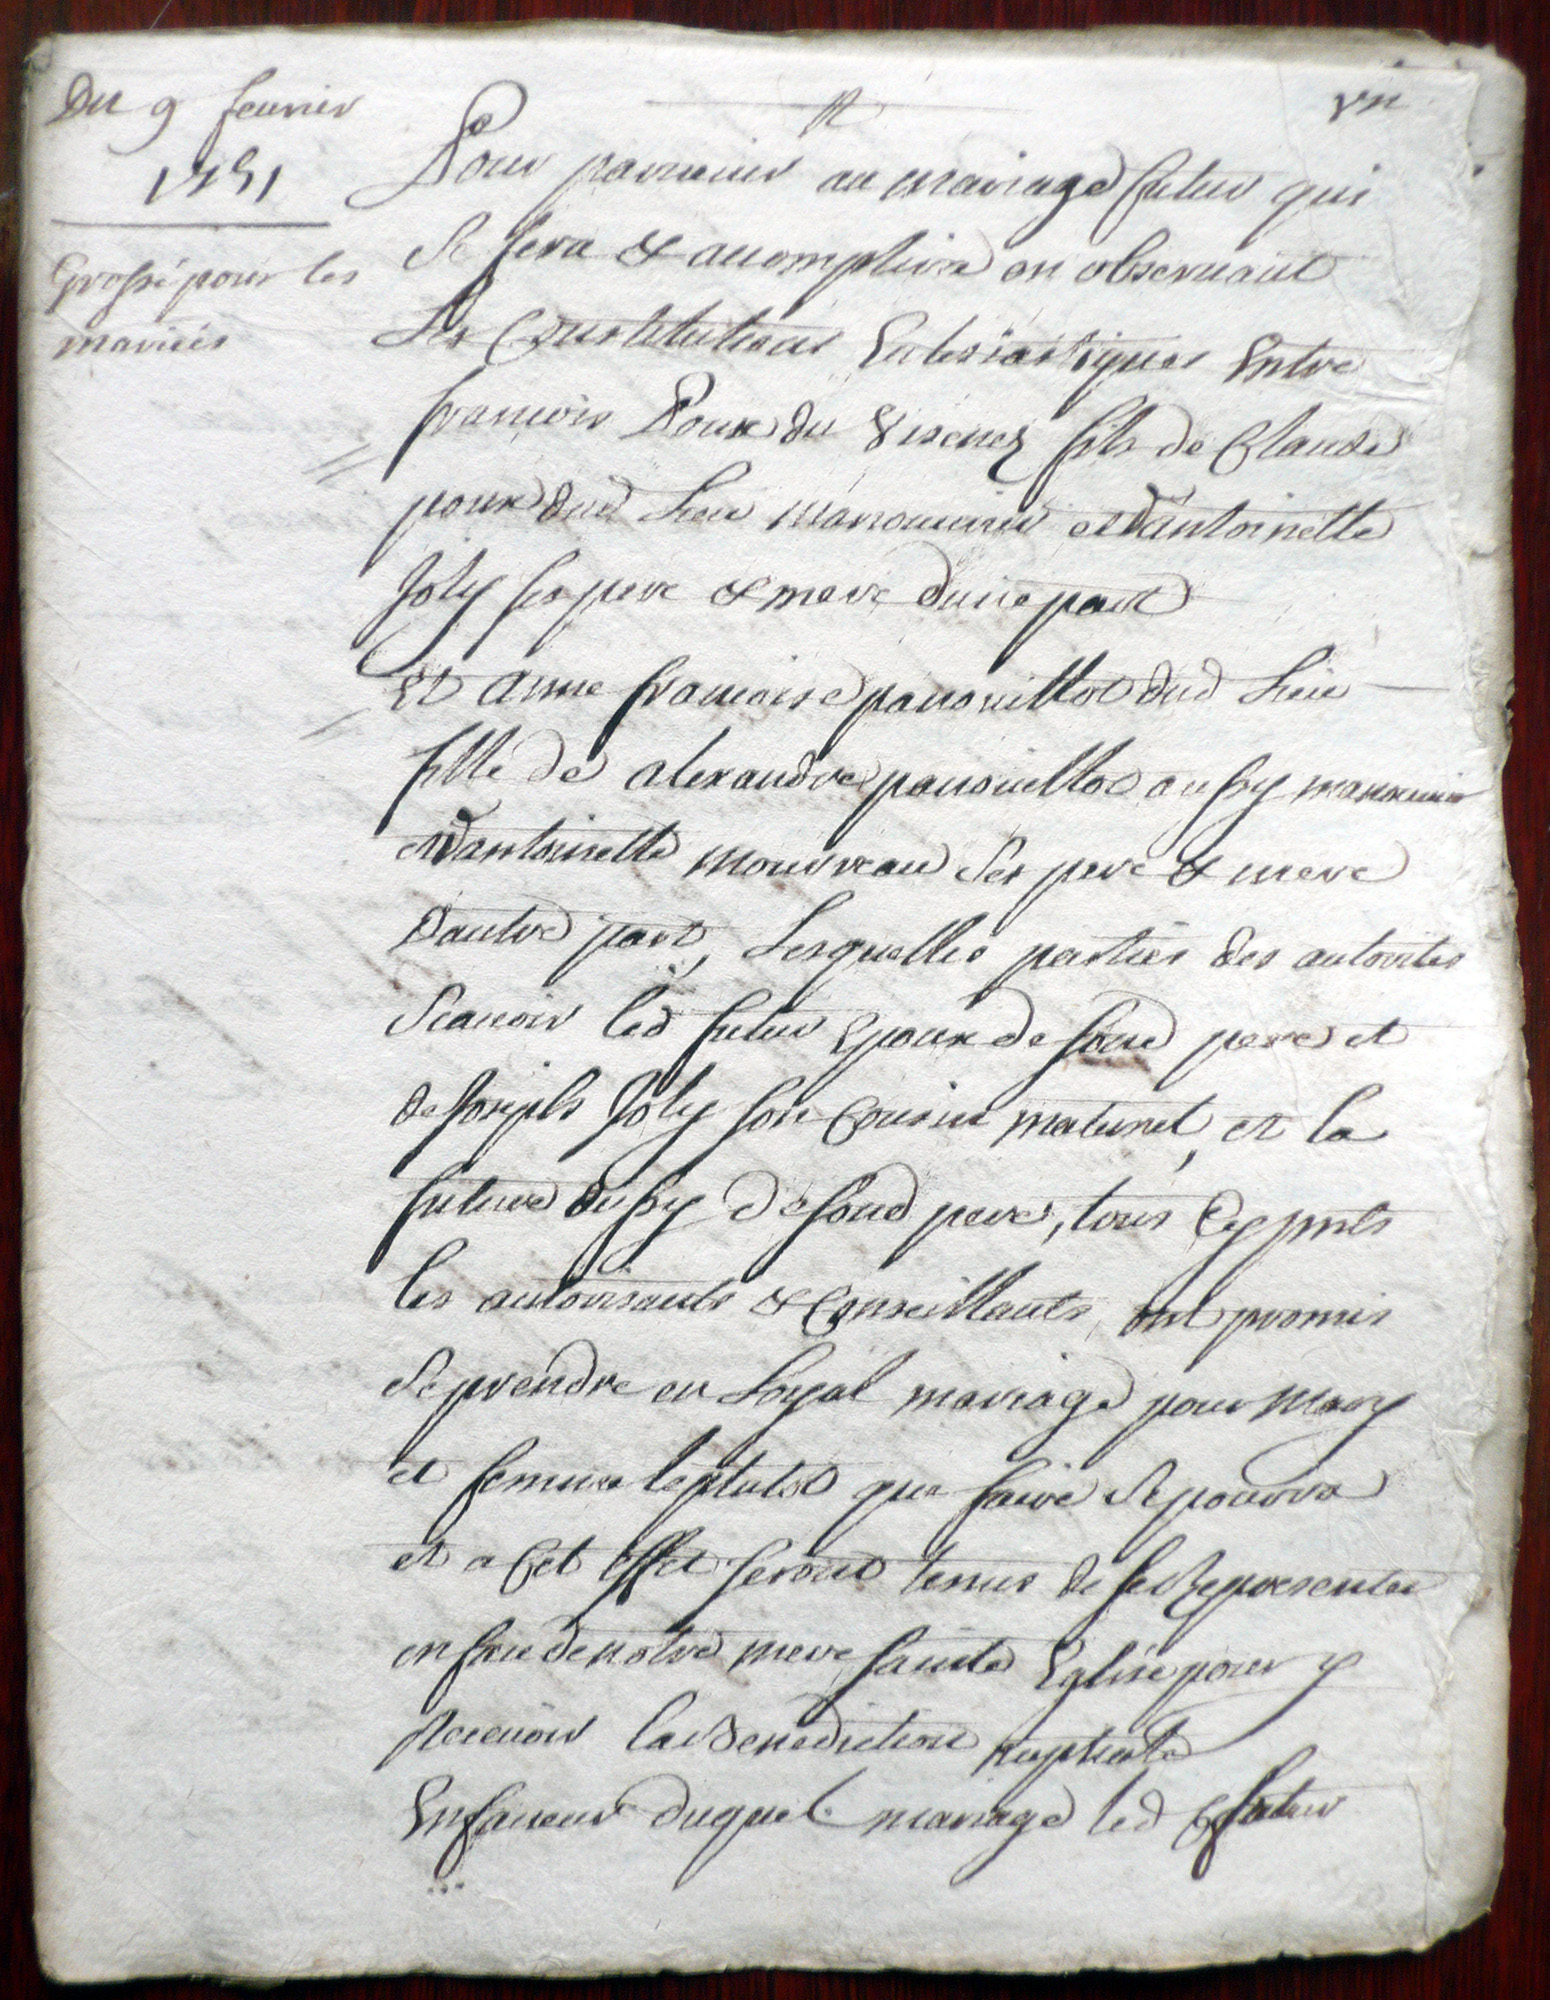 Du 9 feurier
1751
Grossé pour les
mariés
Pour paruenir au mariage futur qui
se fera & acomplira en obseruant
les Constitutions Eclesiastiques Entre
francois Poux du fils de Claude
poux dud lieu manouurier et dantoinette
Joly ses pere & mere dune part
Et anne francoise panouillot dud lieu
fille de alexandre panouillot aussy manouurier
et dantoinette mouvreau ses pere & mere
dautre part, Lesquelles parties des autorites
scauoir led futur Epoux de sond pere et
de Joseph Joly son Cousin maturnel, et la
future aussy de sond pere, tous Cy pnts
les autorisants & Conseillants, ont promis
se prendre en Loyal mariage pour mary
et femme le plutot que faire se pourra
et a Cet effet seront tenus de se Representer
en face de notre mere sainte Eglise pour y
Receuoir la Benediction nuptiale
En faueur duquel mariage led futur